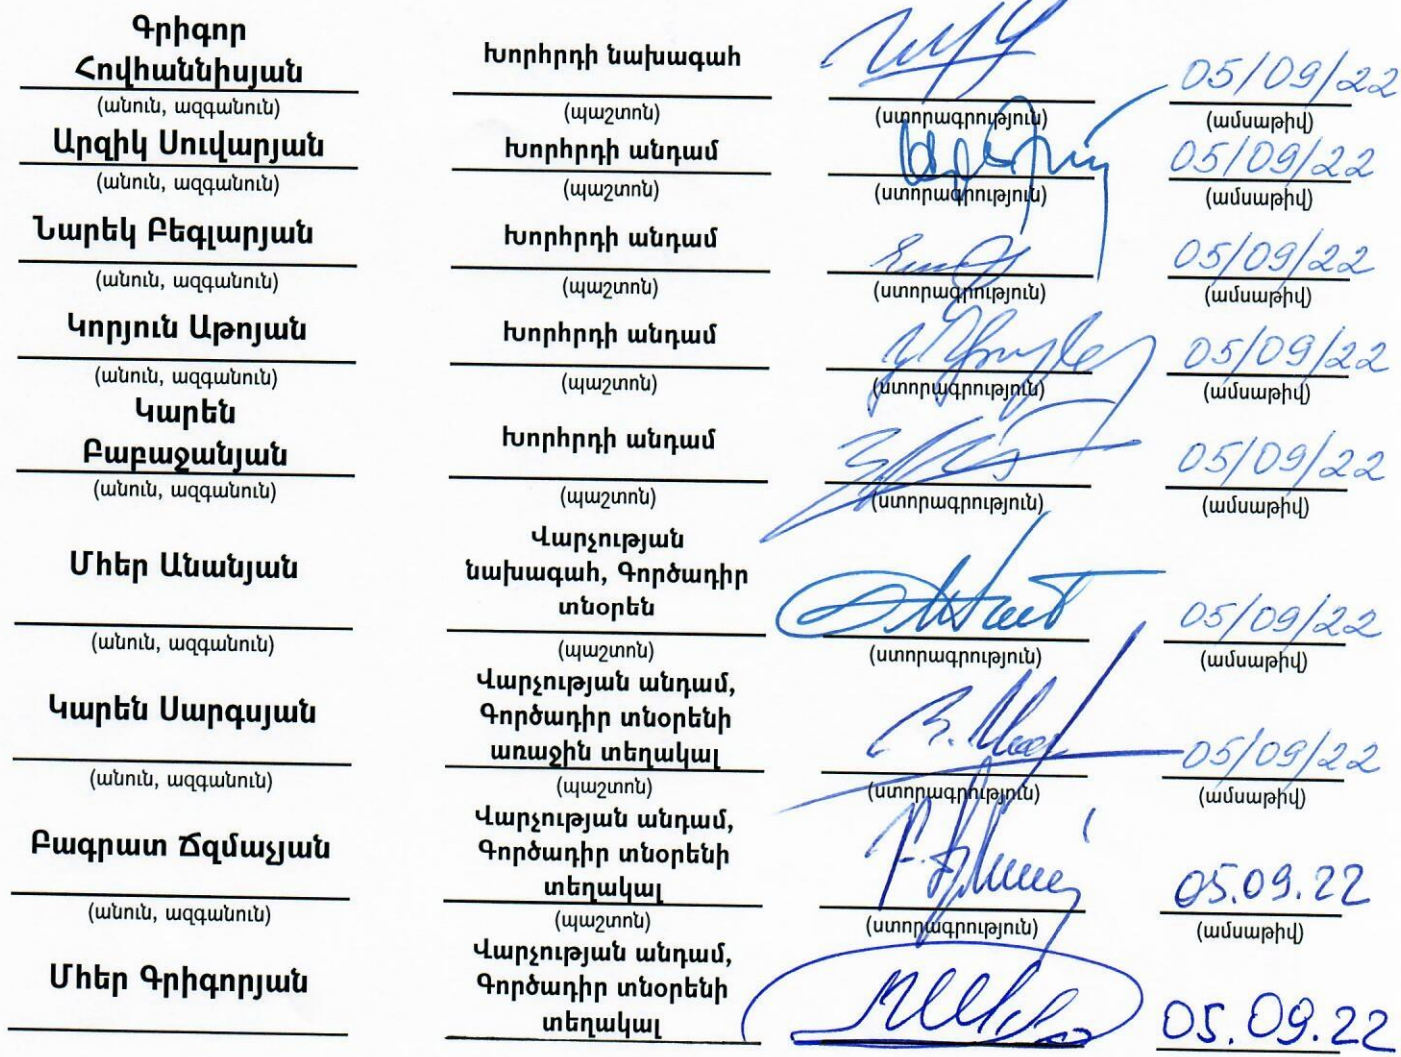 Գրիգոր
Հովհաննիսյան Խորհրդի նախագահ 05/09/22
(անուն, ազգանուն) (պաշտոն) (ստորագրություն) (ամսաթիվ)
Արզիկ Սուվարյան Խորհրդի անդամ 05/09/22
(անուն, ազգանուն) (պաշտոն) (ստորագրություն) (ամսաթիվ)
Նարեկ Բեգլարյան Խորհրդի անդամ 05/09/22
(անուն, ազգանուն) (պաշտոն) (ստորագրություն) (ամսաթիվ)
Կորյուն Աթոյան Խորհրդի անդամ 05/09/22
(անուն, ազգանուն) (պաշտոն) (ստորագրություն) (ամսաթիվ)
Կարեն
Բաբաջանյան Խորհրդի անդամ 05/09/22
(անուն, ազգանուն) (պաշտոն) (ստորագրություն) (ամսաթիվ)
Վարչության
Մհեր Անանյան նախագահ, Գործադիր
տնօրեն 05/09/22
(անուն, ազգանուն) (պաշտոն) (ստորագրություն) (ամսաթիվ)
Վարչության անդամ,
Կարեն Սարգսյան Գործադիր տնօրենի
առաջին տեղակալ 05/09/22
(անուն, ազգանուն) (պաշտոն) (ստորագրություն) (ամսաթիվ)
Վարչության անդամ,
Բագրատ Ճզմաչյան Գործադիր տնօրենի
տեղակալ 05.09.22
(անուն, ազգանուն) (պաշտոն) (ստորագրություն) (ամսաթիվ)
Վարչության անդամ,
Մհեր Գրիգորյան Գործադիր տնօրենի
տեղակալ 05.09.22